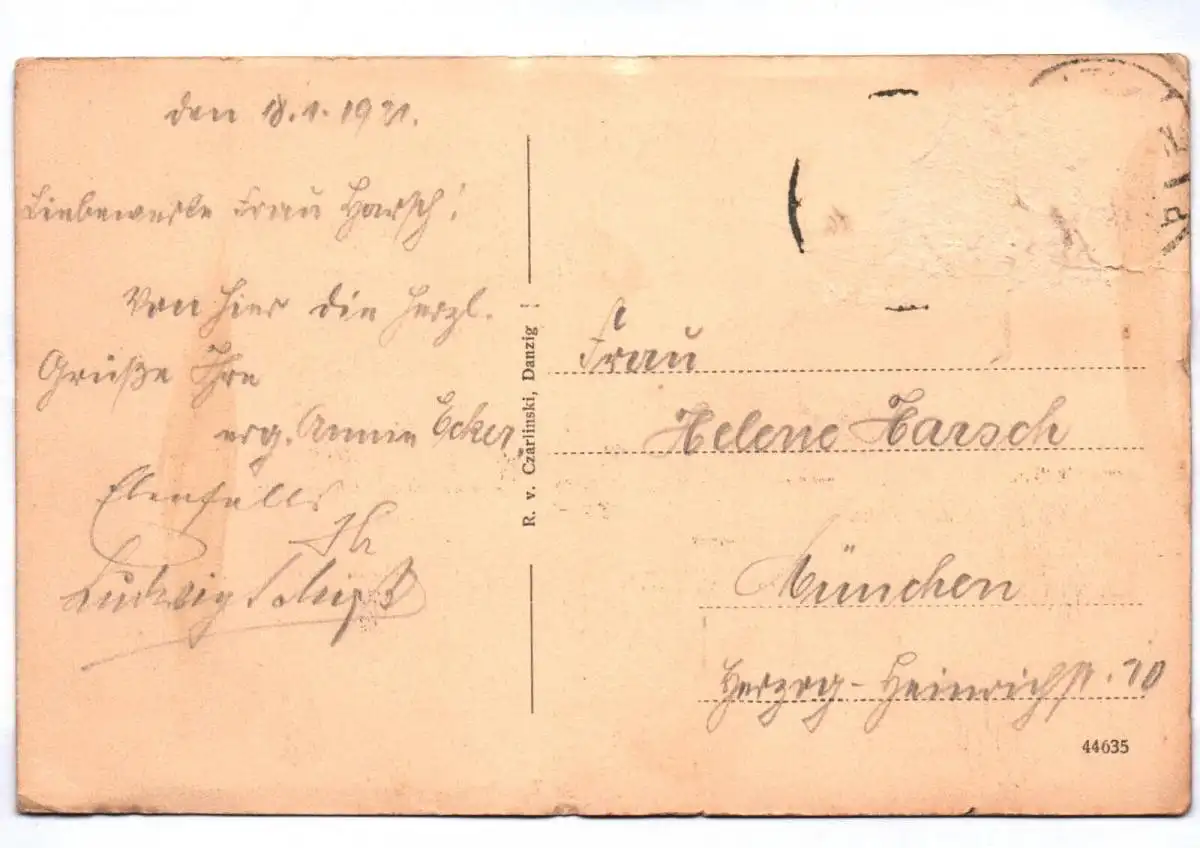 den 18.1.1921.
Liebewerte Frau Harsch!
Von hier die herzl.
Grüße Ihre
erg. Annie Ecker.
Ebenfalls
Ludwig
R. v. Czarlinski, Danzig
Frau
Helene Harsch
München
Herzog-Heinrichst. 20
44635